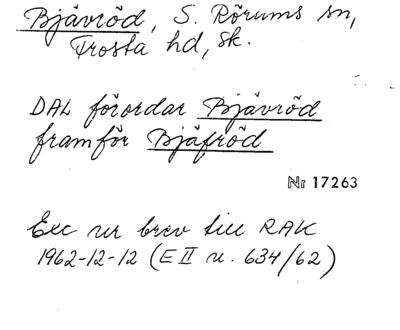 Bjävröd, S. Rörums sn,
Frosta hd, Sk.
DAL förordar Bjävröd
framför Bjäfröd
Nr 17263
Exc ur brev till RAK
1962-12-12 (E II u. 634/62)